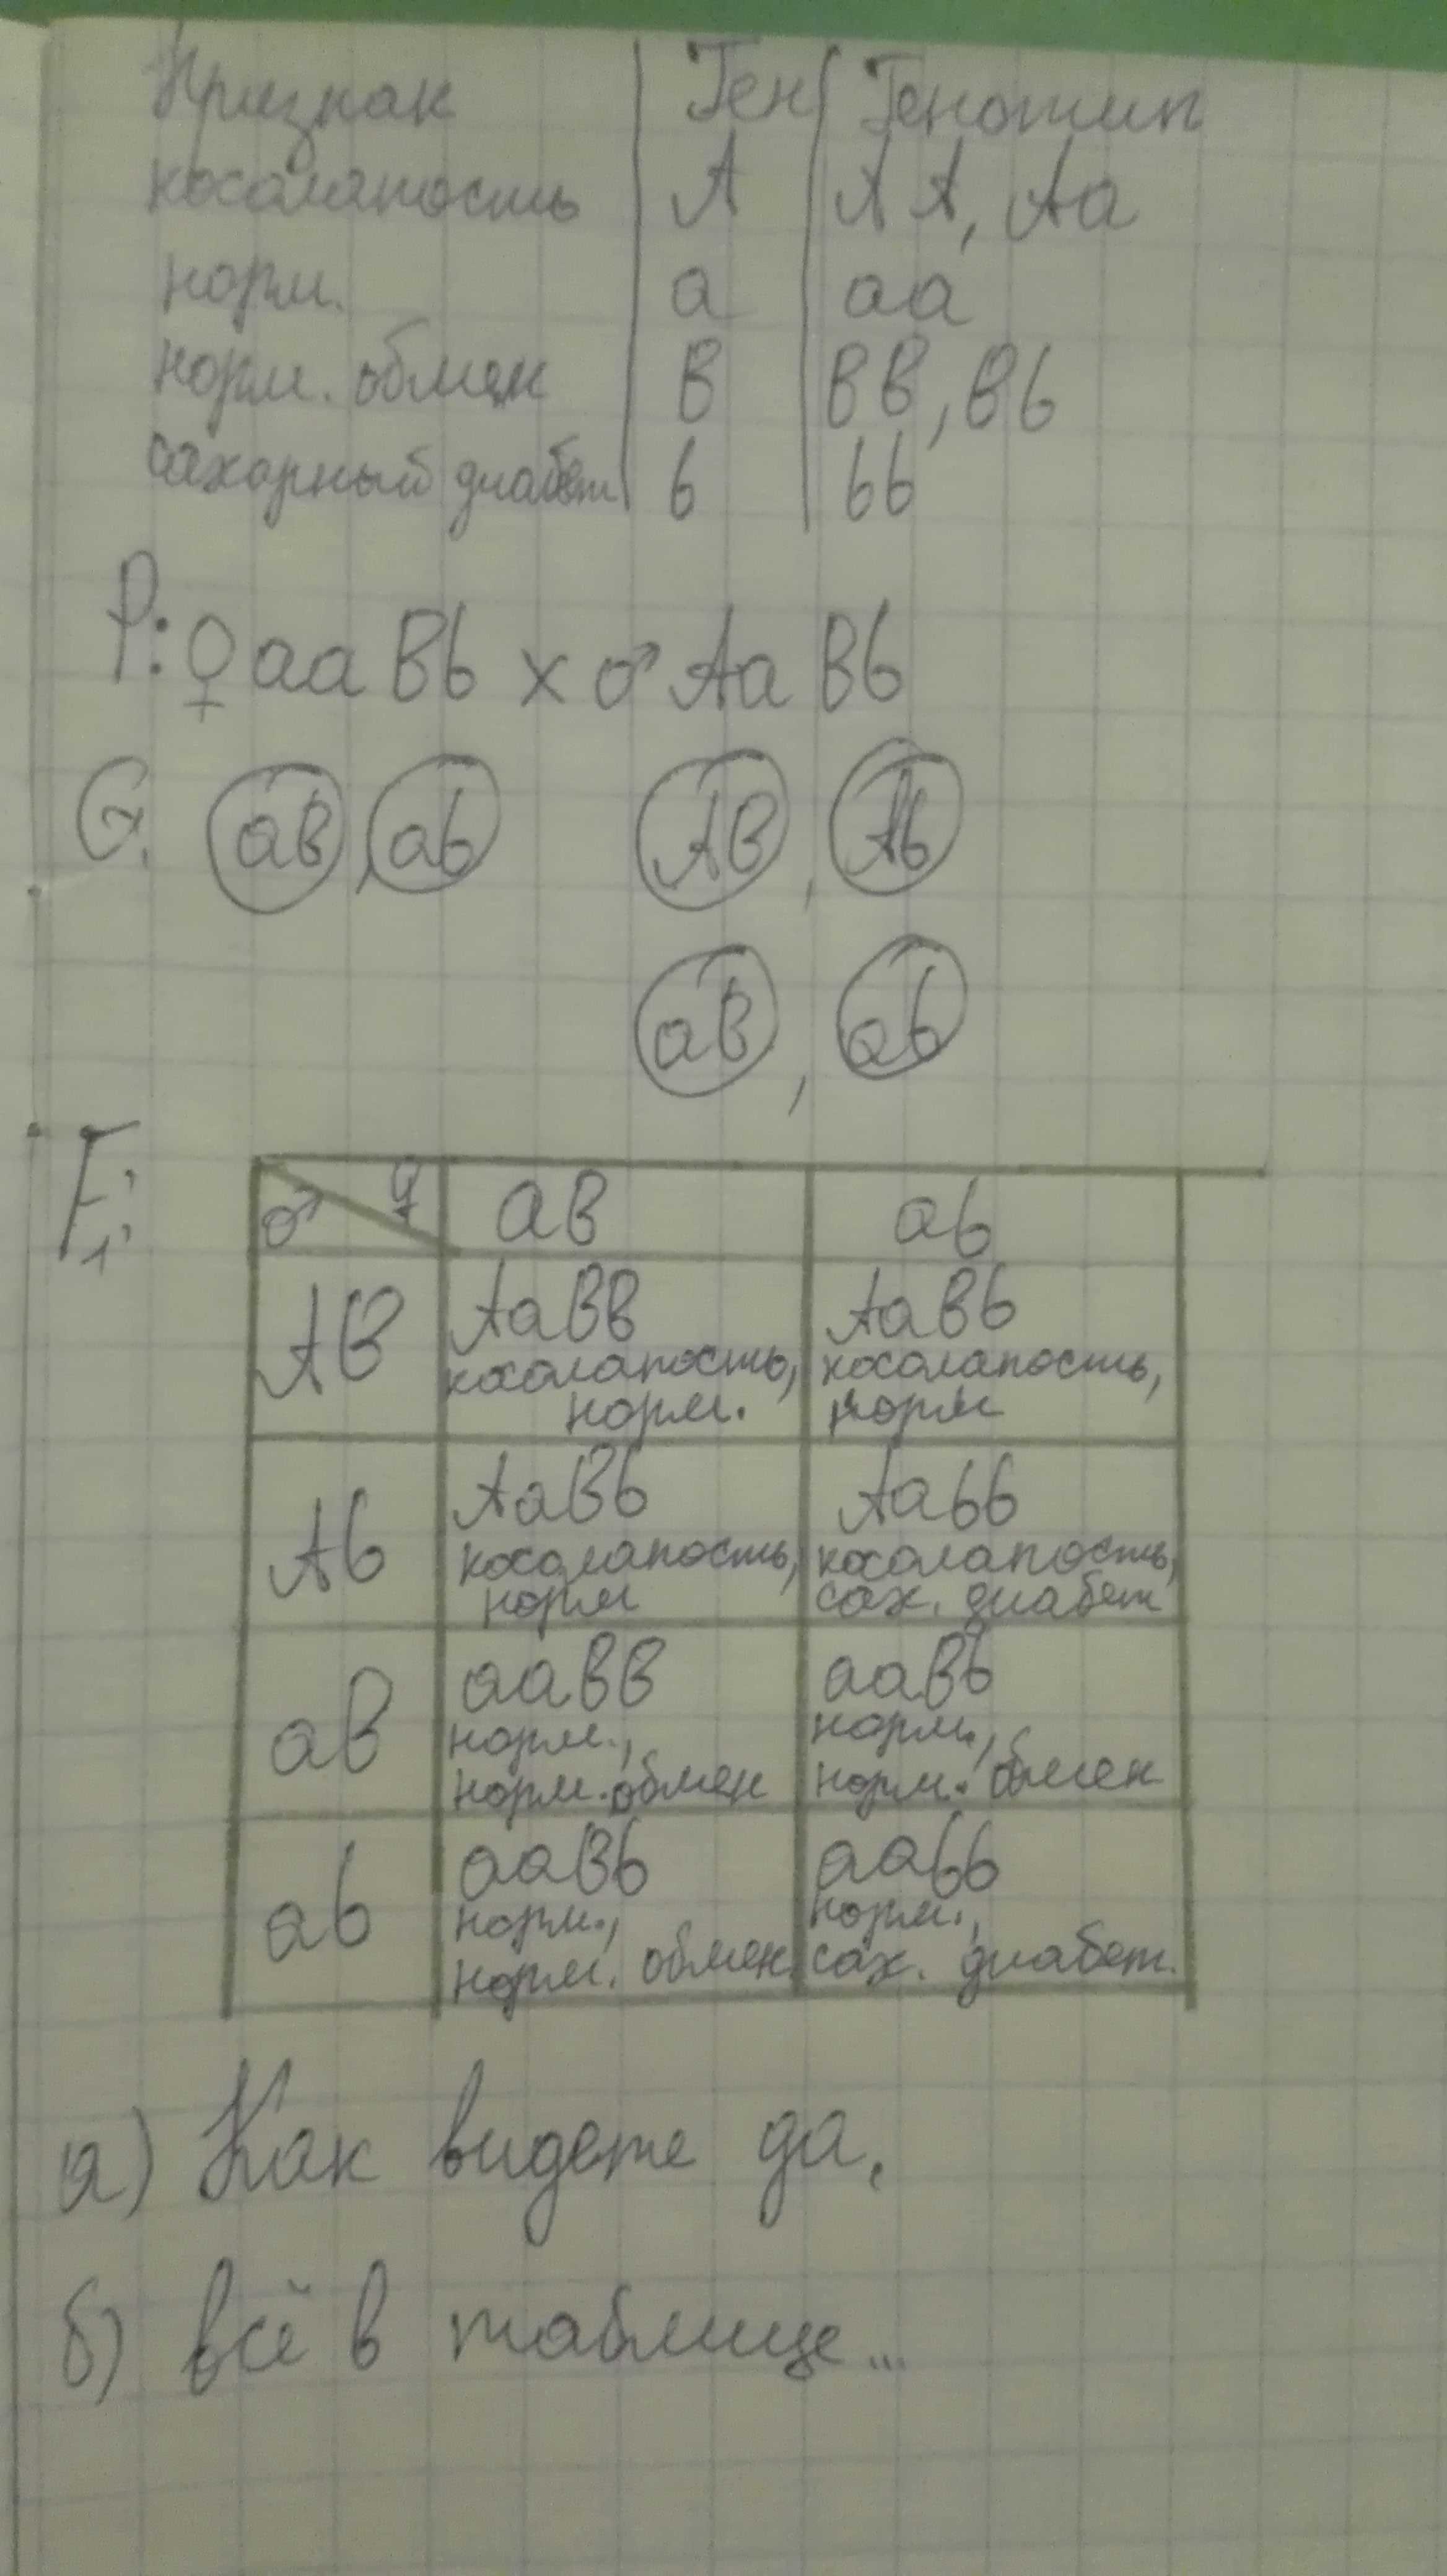 Признак | Ген | Генотип
косолапость | А | АА, Аа
норм. | а | аа
норм. обмен | В | ВВ, Вb
сахарный диабет | b | bb
P: ♀ aa Bb x ♂ Aa Bb
G. aB, ab AB, Ab
aB, ab
F₁:
♂ ♀ aB ab
AB AaBB AaBb
косолапость, косолапость,
норм. норм
Ab AaBb Aabb
косолапость, косолапость,
норм сах. диабет
aB aaBB aaBb
норм., норм.,
норм. обмен норм. обмен
ab aaBb aabb
норм., норм.,
норм. обмен сах. диабет.
а) Как видете да,
б) всё в таблице...